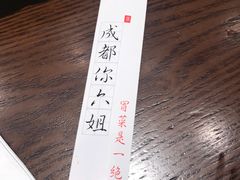 成都你六姐
冒菜是一绝